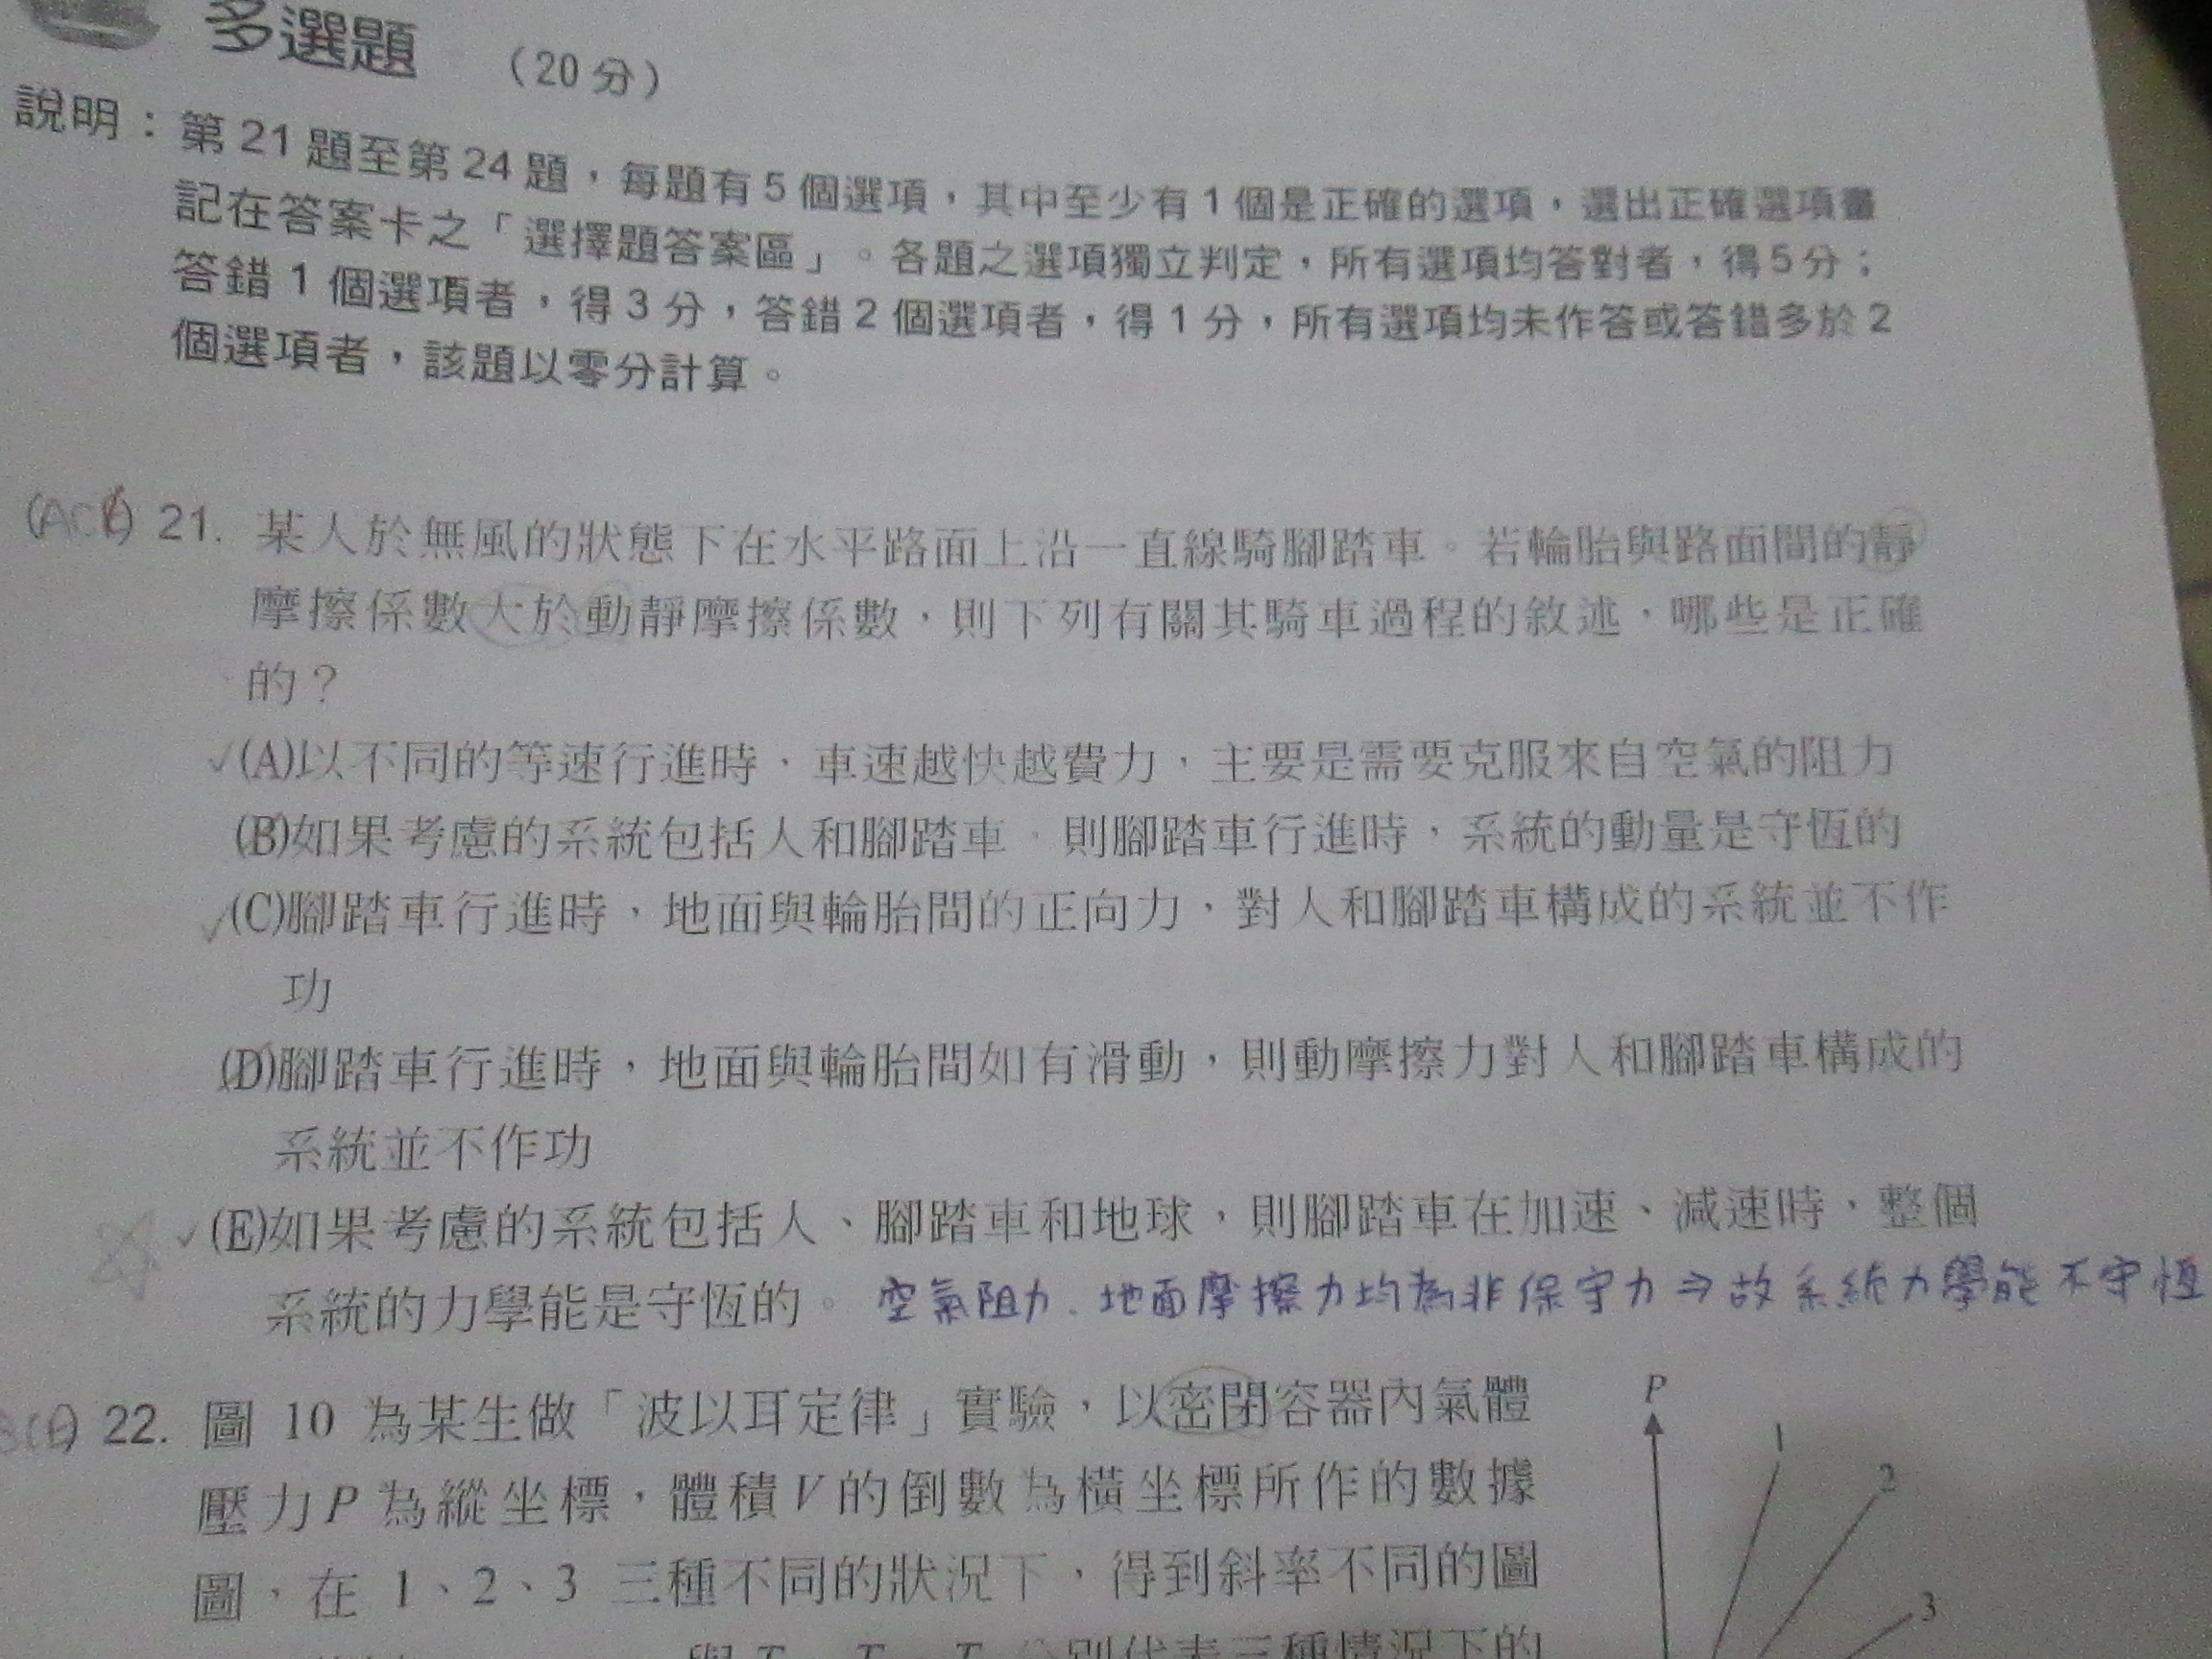 多選題 （20分）
說明：第21題至第24題，每題有5個選項，其中至少有1個是正確的選項，選出正確選項畫
記在答案卡之「選擇題答案區」。各題之選項獨立判定，所有選項均答對者，得5分；
答錯1個選項者，得3分，答錯2個選項者，得1分，所有選項均未作答或答錯多於2
個選項者，該題以零分計算。
21. 某人於無風的狀態下在水平路面上沿一直線騎腳踏車。若輪胎與路面間的靜
摩擦係數大於動靜摩擦係數，則下列有關其騎車過程的敘述，哪些是正確
的？
(A)以不同的等速行進時，車速越快越費力，主要是需要克服來自空氣的阻力
(B)如果考慮的系統包括人和腳踏車，則腳踏車行進時，系統的動量是守恆的
(C)腳踏車行進時，地面與輪胎間的正向力，對人和腳踏車構成的系統並不作
功
(D)腳踏車行進時，地面與輪胎間如有滑動，則動摩擦力對人和腳踏車構成的
系統並不作功
(E)如果考慮的系統包括人、腳踏車和地球，則腳踏車在加速、減速時，整個
系統的力學能是守恆的。 空氣阻力、地面摩擦力均為非保守力⇒故系統力學能不守恆
22. 圖 10 為某生做「波以耳定律」實驗，以密閉容器內氣體
壓力P為縱坐標，體積V的倒數為橫坐標所作的數據
圖，在 1、2、3 三種不同的狀況下，得到斜率不同的圖
分別代表三種情況下的
P
1
2
3